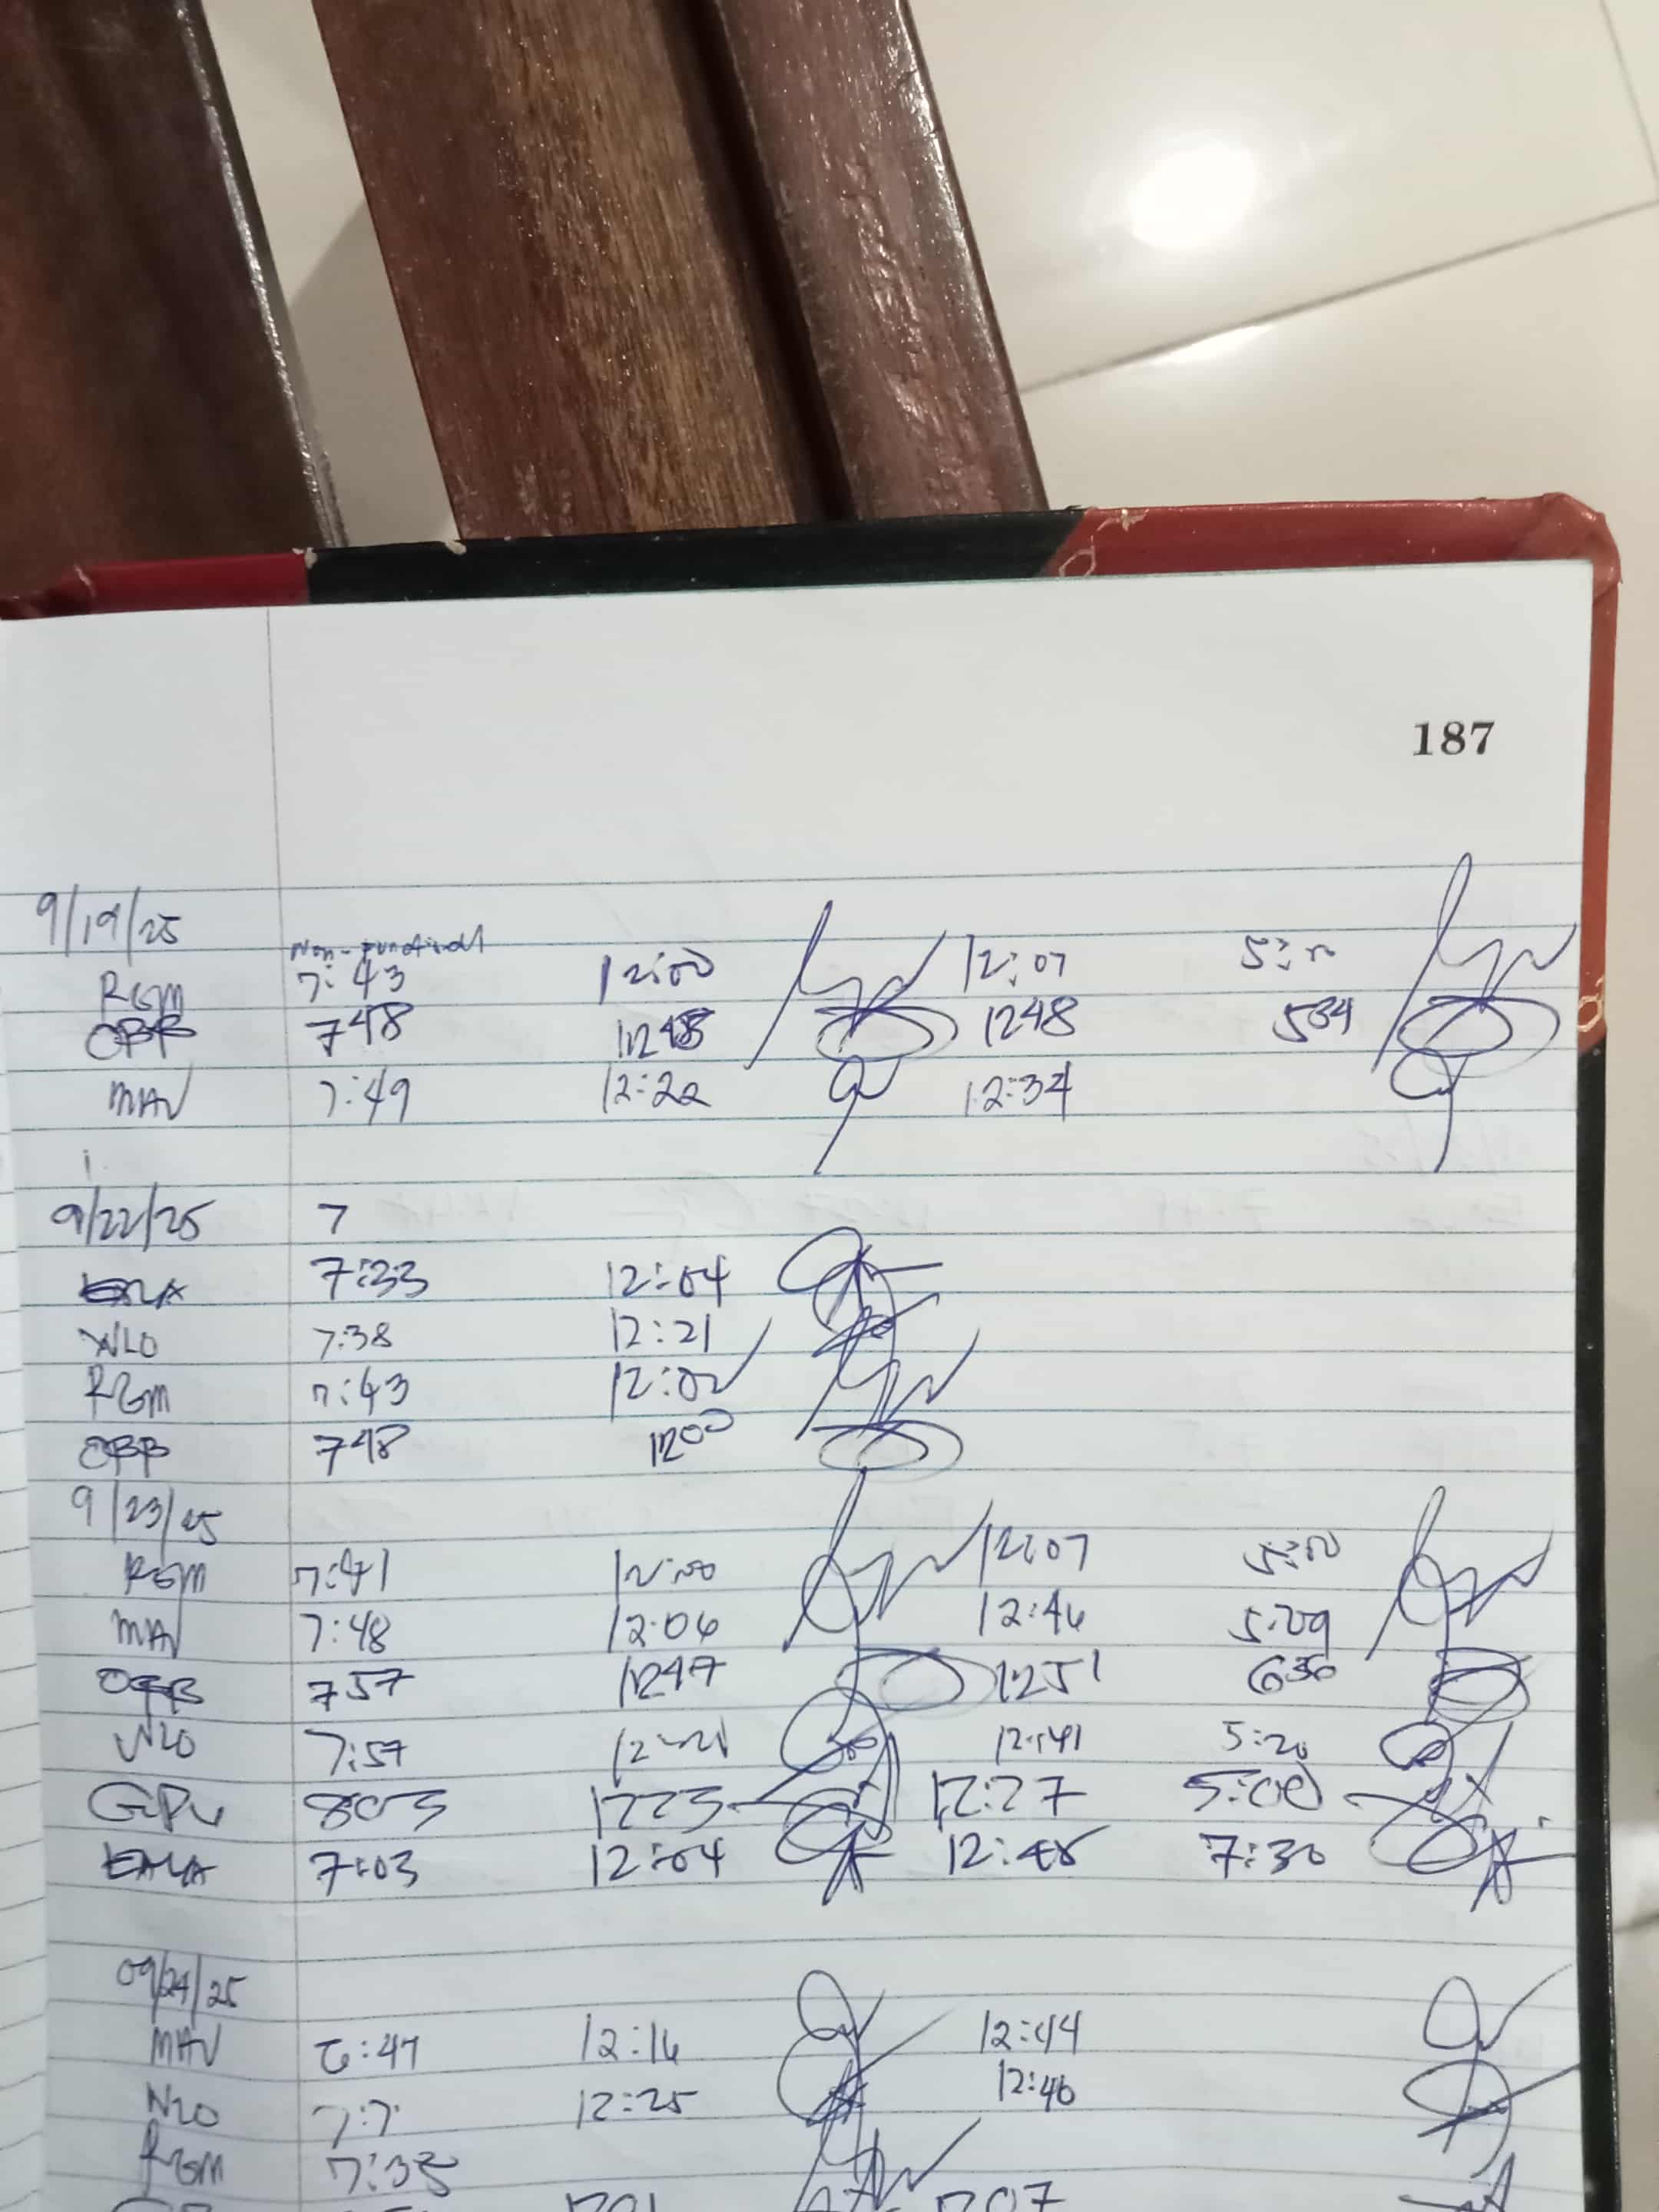 187
9/19/25
Non-Functional
RGM 7:43 12:00 12:07 5:00
OBB 748 1248 1248 534
MAV 7:49 12:22 12:34
9/22/25 7
7:33 12:04
NLO 7:38 12:21
RGM 7:43 12:00
OBB 748 1200
9/23/25
RGM 7:41 12:00 12:07 5:00
MAV 7:48 12:06 12:46 5:09
OBB 757 1247 1251 630
NLO 7:57 12:21 12:41 5:20
803 1223 12:27 5:00
7:03 12:04 12:45 7:30
09/24/25
MAV 6:47 12:16 12:44
NLO 12:25 12:46
RGM 7:35
1201 1207